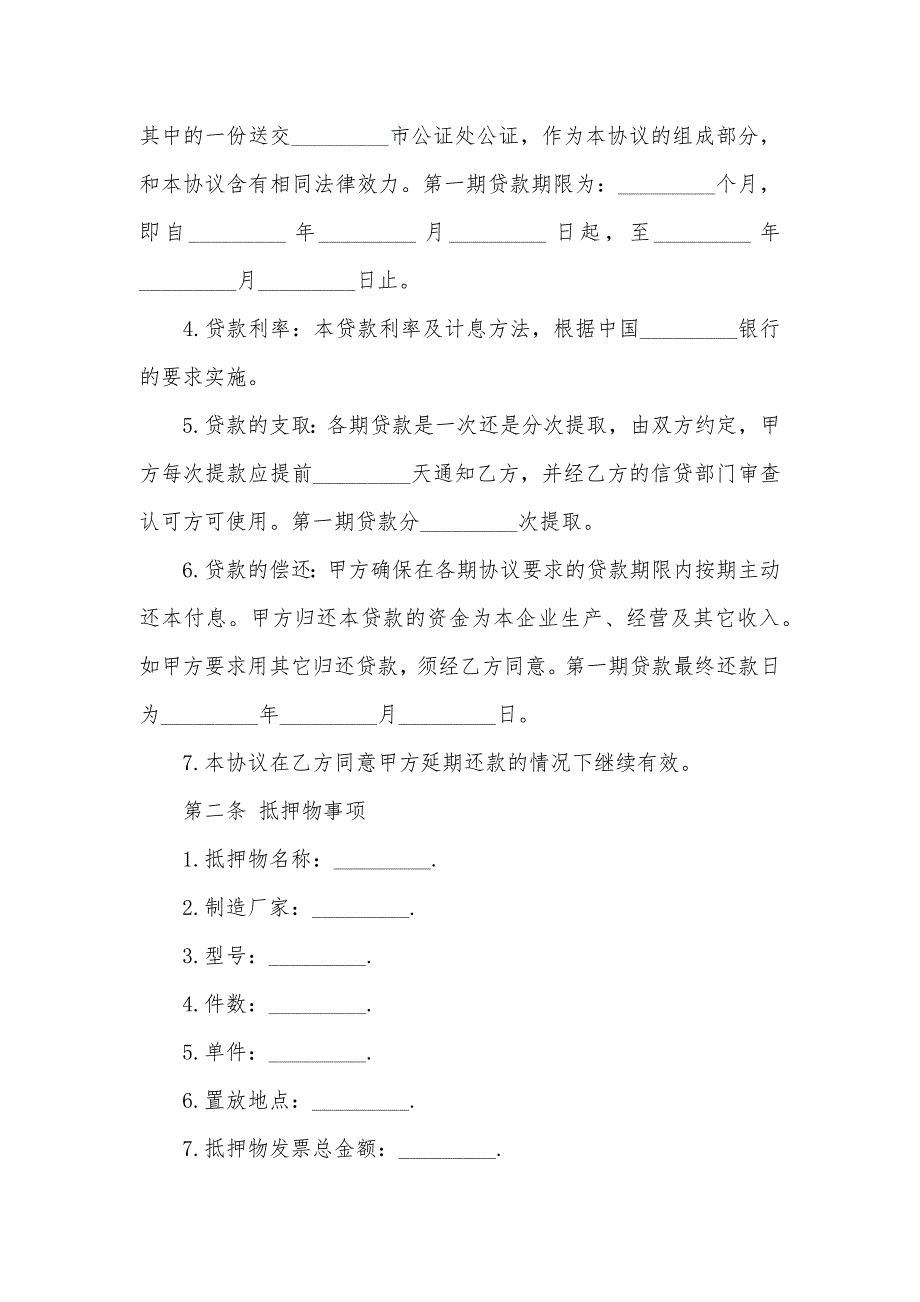 其中的一份送交_________市公证处公证，作为本协议的组成部分，
和本协议含有相同法律效力。第一期贷款期限为：_________个月，
即自_________ 年_________ 月_________ 日起，至_________ 年
_________月_________日止。
4.贷款利率：本贷款利率及计息方法，根据中国_________银行
的要求实施。
5.贷款的支取：各期贷款是一次还是分次提取，由双方约定，甲
方每次提款应提前_________天通知乙方，并经乙方的信贷部门审查
认可方可使用。第一期贷款分_________次提取。
6.贷款的偿还：甲方确保在各期协议要求的贷款期限内按期主动
还本付息。甲方归还本贷款的资金为本企业生产、经营及其它收入。
如甲方要求用其它归还贷款，须经乙方同意。第一期贷款最终还款日
为_________年_________月_________日。
7.本协议在乙方同意甲方延期还款的情况下继续有效。
第二条 抵押物事项
1.抵押物名称：_________.
2.制造厂家：_________.
3.型号：_________.
4.件数：_________.
5.单件：_________.
6.置放地点：_________.
7.抵押物发票总金额：_________.